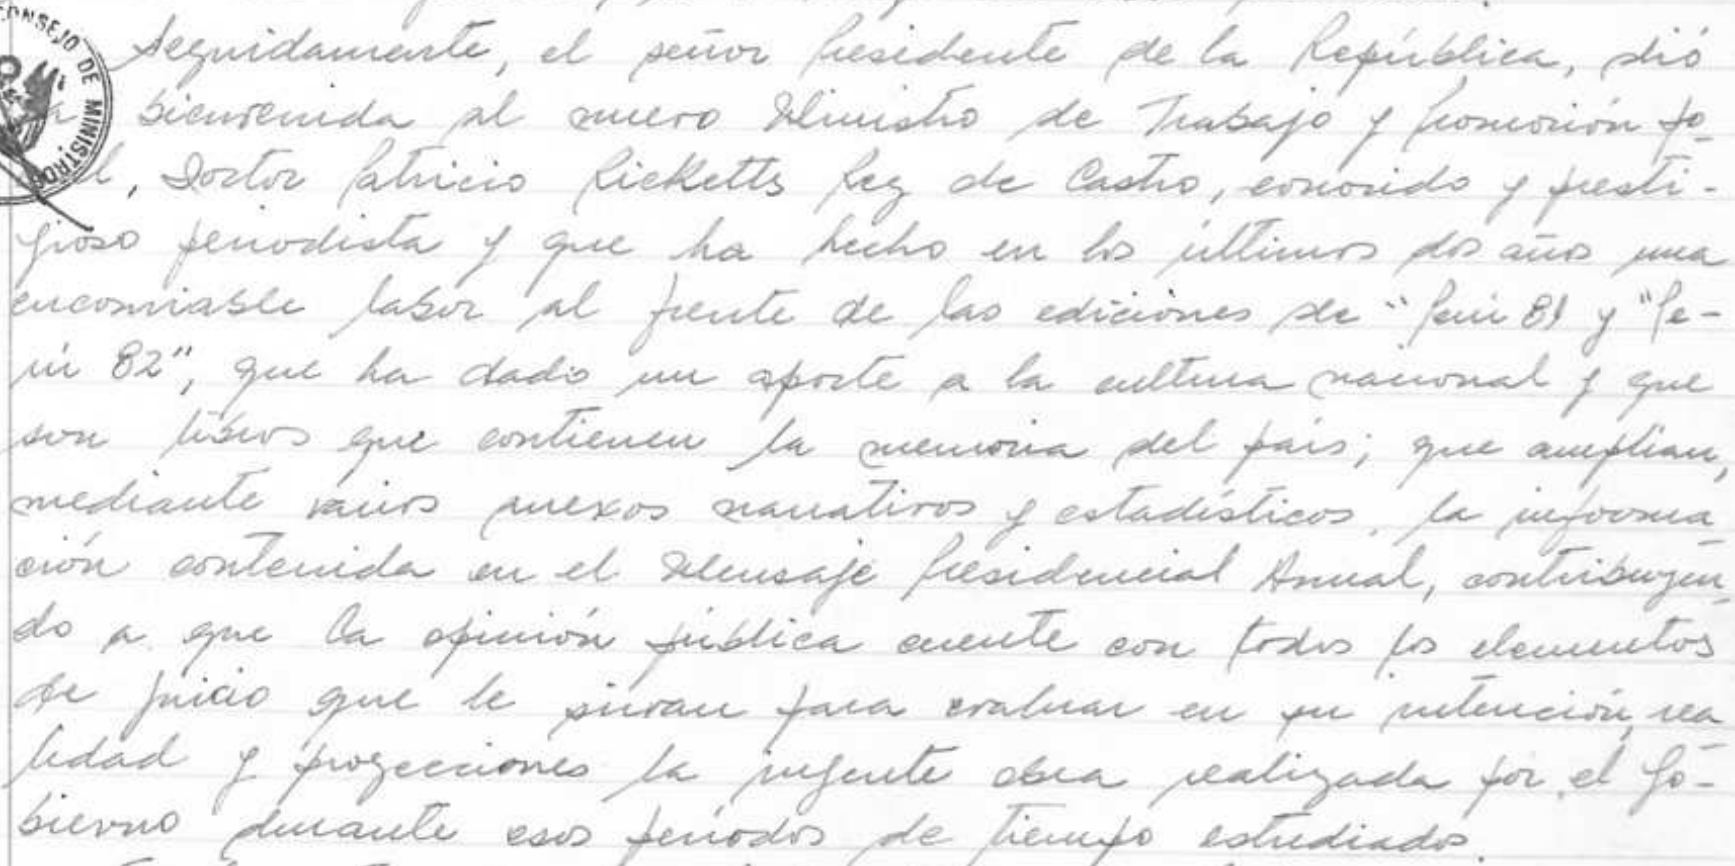 CONSEJO DE MINISTROS
Seguidamente, el señor Presidente de la República, dió
bienvenida al nuevo Ministro de Trabajo y Promoción So-
l, Doctor Patricio Ricketts Rey de Castro, conocido y presti-
gioso periodista y que ha hecho en los últimos dos años una
encomiable labor al frente de las ediciones de "Perú 81 y "Pe-
rú 82", que ha dado un aporte a la cultura nacional y que
son libros que contienen la memoria del país; que amplian,
mediante varios anexos narrativos y estadísticos, la informa
ción contenida en el Mensaje Presidencial Anual, contribuyen
do a que la opinión pública cuente con todos los elementos
de juicio que le sirvan para evaluar en su intención, rea
lidad y proyecciones la ingente obra realizada por el Go-
bierno durante esos períodos de tiempo estudiados.